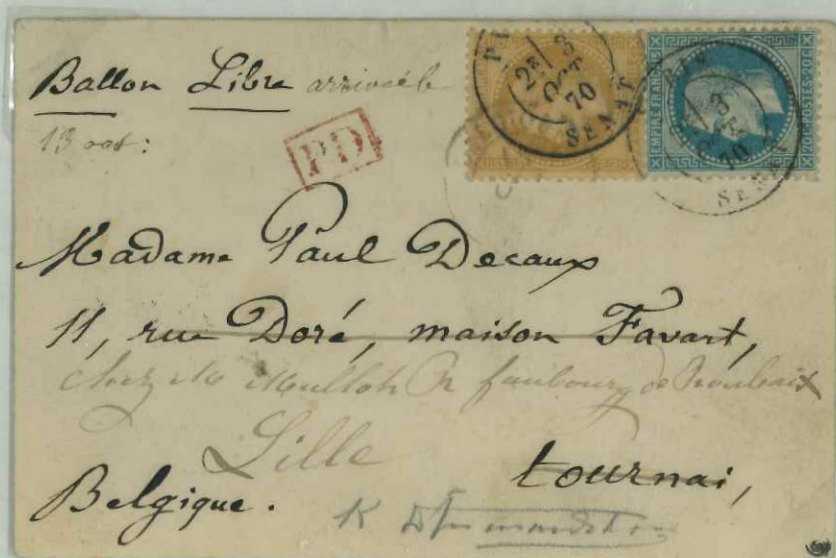 Ballon Libre arrivée le
13 oct:
PD
2E 3
OCT
70
SENAT
EMPIRE FRANÇAIS
20c POSTES 20c
3
70
SENAT
Madame Paul Decaux
11, rue Doré, maison Favart,
chez Me faubourg de Roubaix
Lille
tournai,
Belgique.